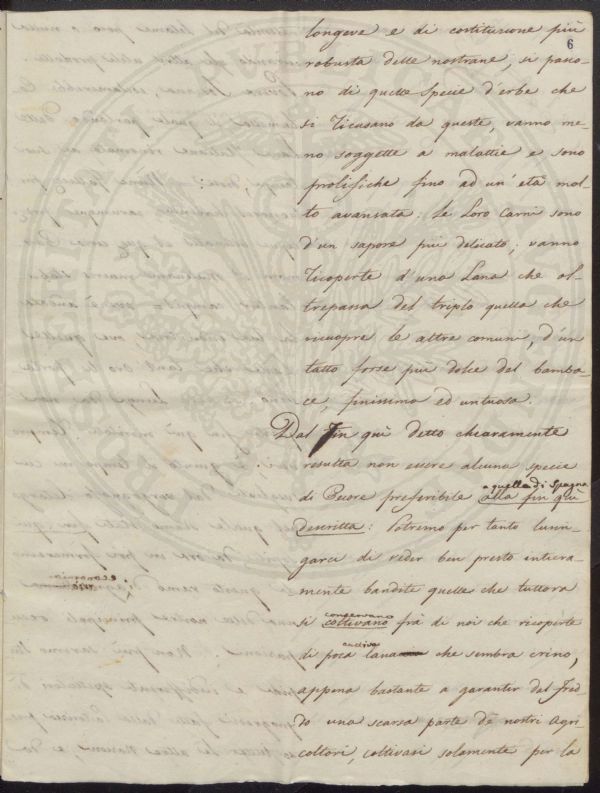 6
longeve e di costituzione più
robusta delle nostrane, si pasco-
no di quelle specie d'erbe che
si ricusano da queste, vanno me-
no soggette a malattie e sono
prolifiche fino ad un'età mol-
to avansata: Le Loro Carni sono
d'un sapore più delicato; vanno
ricoperte d'una Lana che ol-
trepassa del triplo quella che
ricuopre le altre comuni, d'un
tatto forse più dolce del bamba-
ce, finissima ed untuosa.
Dal fin quì detto chiaramente
resulta non essere alcuna specie
a quella di Spagna
di Pecore preferibile alla fin quì
descritta: Potremo per tanto lusin-
garci di veder ben presto intiera-
mente bandite quelle che tuttora
conservano
si coltivano frà di noi che ricoperte
cattiva
di poca lana che sembra crino,
appena bastante a garantir dal fred-
do una scarsa parte de nostri agri
coltori, coltivasi solamente per la
economia